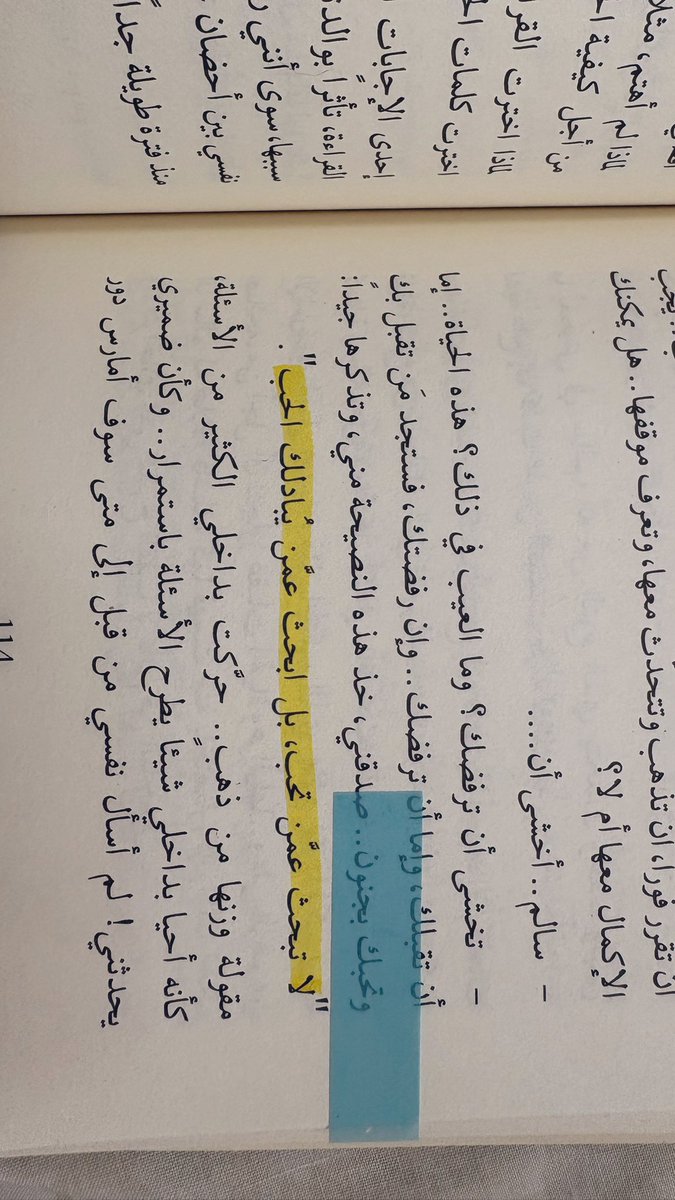 يجب
أن تقرر فورا، أن تذهب وتتحدث معها، وتعرف موقفها.. هل يمكنك
الإكمال معها أم لا؟
- سالم.. أخشى أن....
- تخشى أن ترفضك؟ وما العيب في ذلك؟ هذه الحياة.. إما
أن تقبلك، وإما أن ترفضك.. وإن رفضتك، فستجد مَن تقبل بك
وتحبك بجنون.. صدقني، خذ هذه النصيحة مني، وتذكرها جيدًا:
"لا تبحث عمَّن تحب، بل ابحث عمَّن يُبادلك الحب".
مقولة وزنها من ذهب.. حرَّكت بداخلي الكثير من الأسئلة،
كأنه أحيا بداخلي شيئًا يطرح الأسئلة باستمرار.. وكأن ضميري
يحدثني! لم أسأل نفسي من قبل إلى متى سوف أمارس دور
114
لماذا لم أهتم، مثلا
من أجل كيفية
لماذا اخترت
اخترت كلمات
إحدى الإجابات
القراءة، تأثرًا
سببها، سوى أنني
نفسي بين أحضان
منذ فترة طويلة جدا